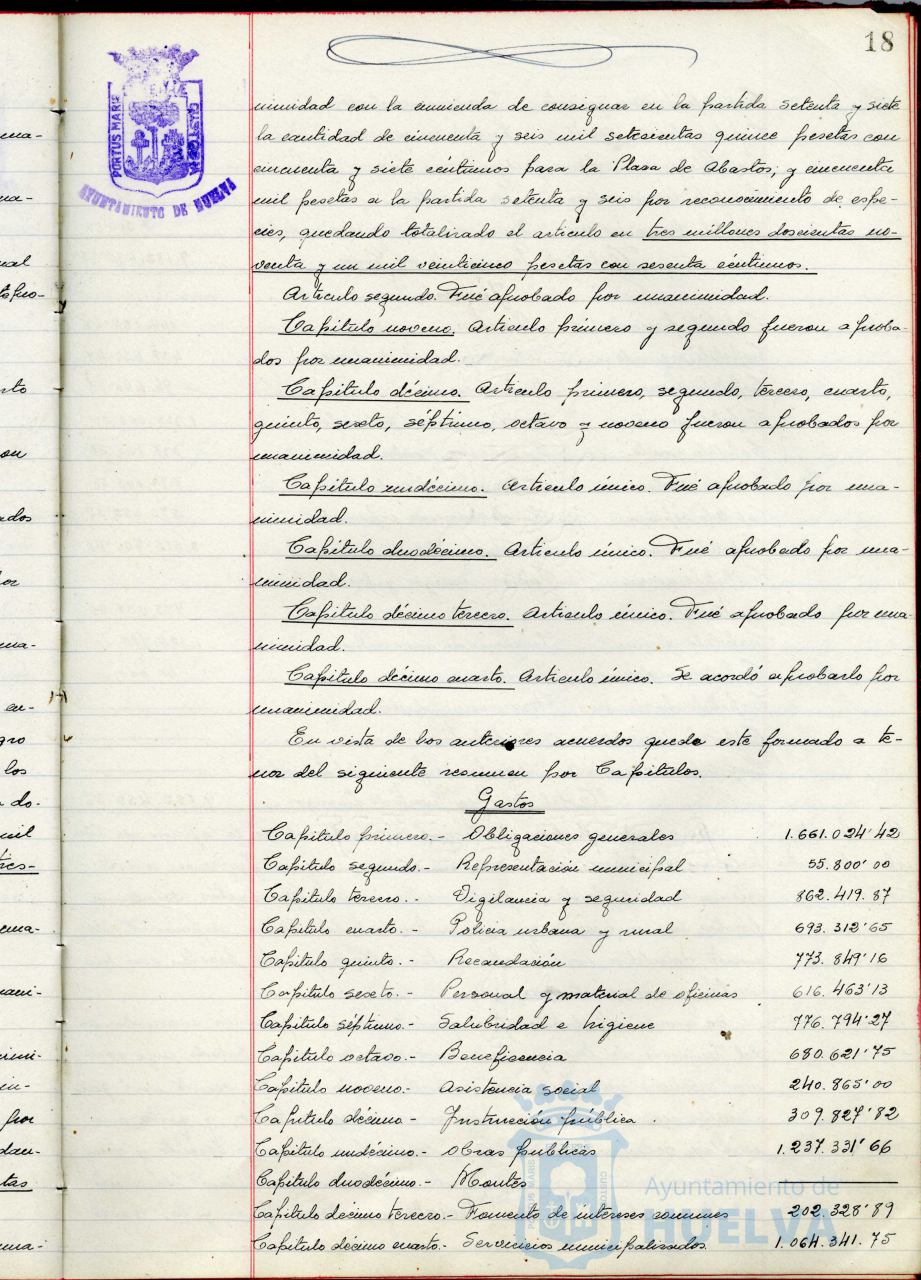 18
PORTUS MARIS CUSTODIA
AYUNTAMIENTO DE HUELVA
nimidad con la enmienda de consignar en la partida setenta y siete
la cantidad de cincuenta y seis mil setecientas quince pesetas con
cincuenta y siete céntimos para la Plaza de Abastos, y cincuenta
mil pesetas a la partida setenta y seis por reconocimiento de espe-
cies, quedando totalizado el artículo en tres millones doscientas no-
venta y un mil veinticinco pesetas con sesenta céntimos.
Artículo segundo. Fué aprobado por unanimidad.
Capítulo noveno. Artículo primero y segundo fueron aproba-
dos por unanimidad.
Capítulo décimo. Artículo primero, segundo, tercero, cuarto,
quinto, sexto, séptimo, octavo y noveno fueron aprobados por
unanimidad.
Capítulo undécimo. Artículo único. Fué aprobado por una-
nimidad.
Capítulo duodécimo. Artículo único. Fué aprobado por una-
nimidad.
Capítulo décimo tercero. Artículo único. Fué aprobado por una-
nimidad.
Capítulo décimo cuarto. Artículo único. Se acordó aprobarlo por
unanimidad.
En vista de los anteriores acuerdos queda este formado a te-
nor del siguiente resumen por Capítulos.
Gastos
Capítulo primero.- Obligaciones generales 1.661.024'42
Capítulo segundo.- Representación municipal 55.800'00
Capítulo tercero.- Vigilancia y seguridad 862.419.87
Capítulo cuarto.- Policía urbana y rural 693.312'65
Capítulo quinto.- Recaudación 773.849'16
Capítulo sexto.- Personal y material de oficinas 616.463'13
Capítulo séptimo.- Salubridad e higiene 776.794'27
Capítulo octavo.- Beneficencia 680.621'75
Capítulo noveno.- Asistencia social 240.865'00
Capítulo décimo.- Instrucción pública 309.827'82
Capítulo undécimo.- Obras públicas 1.237.331'66
Capítulo duodécimo.- Montes
Capítulo décimo tercero.- Fomento de intereses comunes 202.328'89
Capítulo décimo cuarto.- Servicios municipalizados. 1.064.341.75
Ayuntamiento de
HUELVA